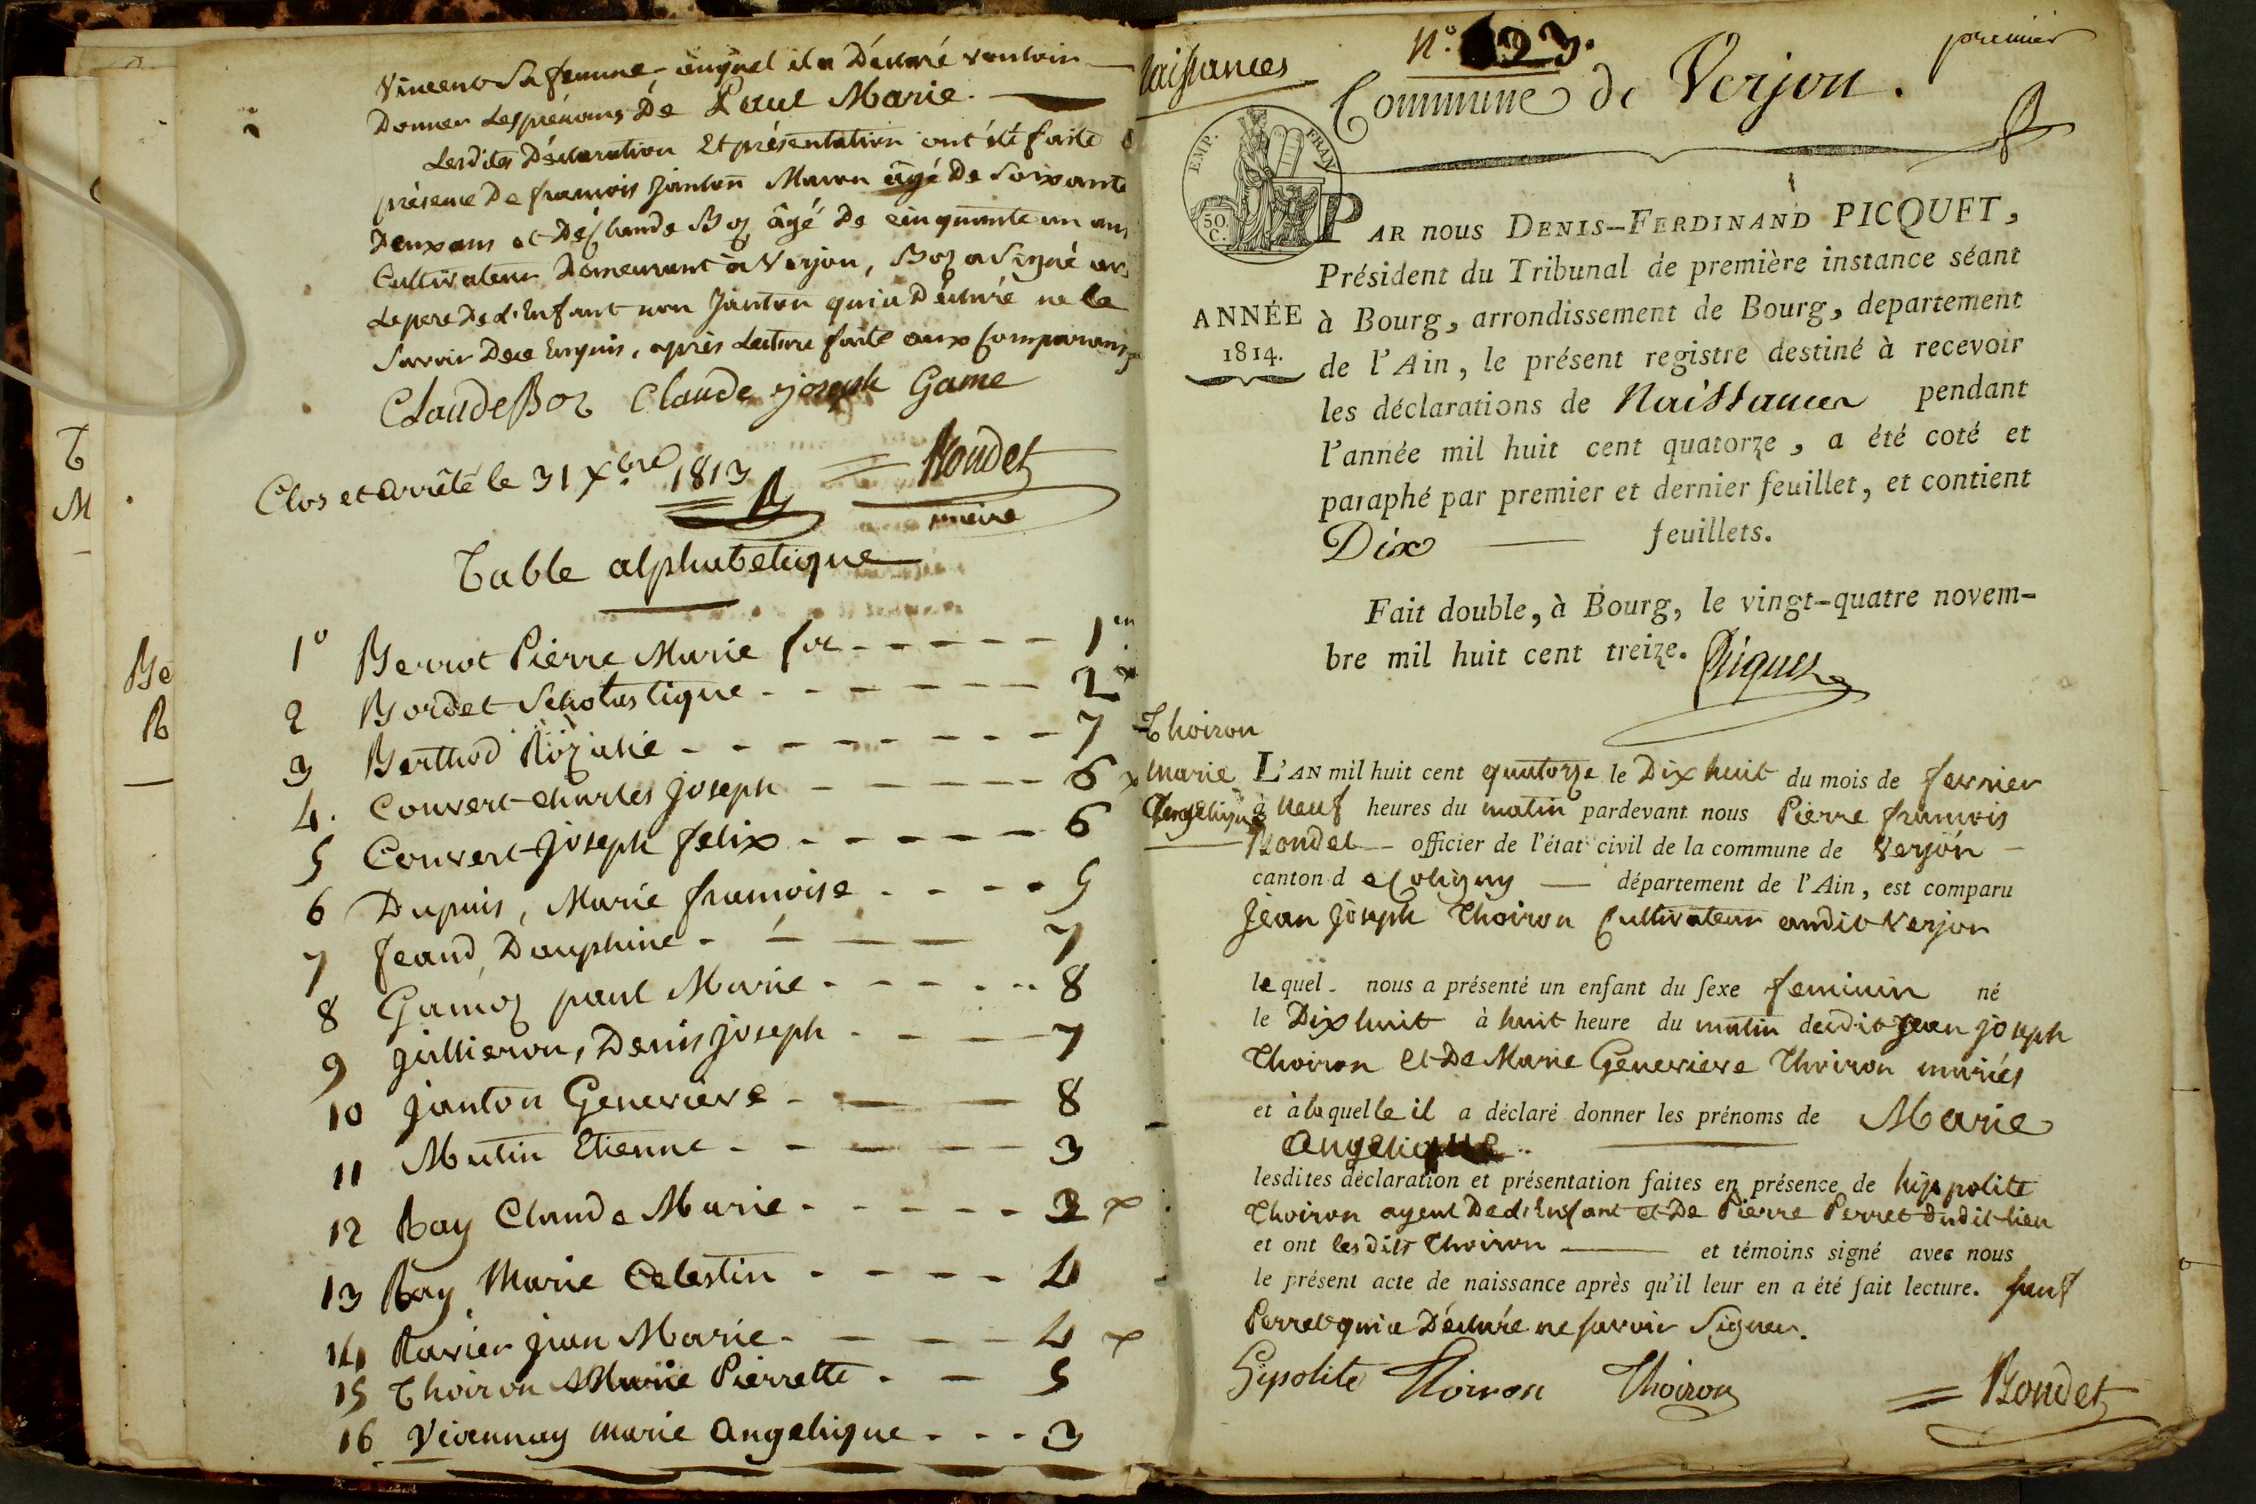 Vincent Sa femme auquel il a Déclaré vouloir
Donner Les prénoms De Paul Marie.
Lesdites Déclaration Et présentation ont été faite
présence De francois Janton Maron âgé De Soixante
Deux ans et De Claude Boz âgé De cinquante un ans
Cultivateur Demeurant à Verjon, Boz a Signé av
Le pere De L'Enfant non Janton qui a Déclaré ne le
Savoir De ce Enquis, après Lecture faite aux Comparans
Claude Boz Claude joseph Game
Clos et arrêté le 31 Xbre 1813
Rondet
maire
Table alphabetique
1º Berrot Pierre Marie - - - - - 1er
2 Bordet Scholastique - - - - - - 2
3 Berthod Rozalie - - - - - - - - 7
4. Convert Charles Joseph - - - - - 6 x
5 Convert Joseph felix - - - - - 6
6 Dupuis, Marie francoise - - - - 5
7 feaud Dauphine - - - - 7
8 Gamoz paul Marie - - - - - 8
9 jullieron, Denis Joseph - - - - 7
10 Janton Genevieve - - - 8
11 Mutin Etienne - - - - - - 3
12 Ray Claude Marie - - - - - 3 x
13 Ray Marie Celestin - - - - 4
14 Ravier jean Marie - - - - - 4 x
15 Thoiron Marie Pierrette - - 5
16 Vivennay Marie Angelique - - - 3
T
M
Be
R
Naissances
Nº 223.
premier
Commune de Verjon.
EMP. FRAN
50 C.
ANNÉE
1814.
PAR nous DENIS-FERDINAND PICQUET,
Président du Tribunal de première instance séant
à Bourg, arrondissement de Bourg, departement
de l'Ain, le présent registre destiné à recevoir
les déclarations de Naissances pendant
l'année mil huit cent quatorze, a été coté et
paraphé par premier et dernier feuillet, et contient
Dix feuillets.
Fait double, à Bourg, le vingt-quatre novem-
bre mil huit cent treize. Picquet
Thoiron
Marie
Angelique
L'AN mil huit cent quatorze le Dix huit du mois de fevrier
à neuf heures du matin pardevant nous Pierre francois
Rondet officier de l'état civil de la commune de Verjon
canton de Coligny département de l'Ain, est comparu
Jean Joseph Thoiron Cultivateur audit Verjon
lequel nous a présenté un enfant du sexe feminin né
le Dix huit à huit heure du matin dudit Jean Joseph
Thoiron et De Marie Genevieve Thoiron mariés
et à laquelle il a déclaré donner les prénoms de Marie
Angelique
lesdites déclaration et présentation faites en présence de hyppolite
Thoiron ayeul De d'Enfant et De Pierre Perret dudit lieu
et ont lesdits Thoiron et témoins signé avec nous
le présent acte de naissance après qu'il leur en a été fait lecture. sauf
Perret qui a Déclaré ne savoir Signer.
Gipolite Thoiron Thoiron Rondet